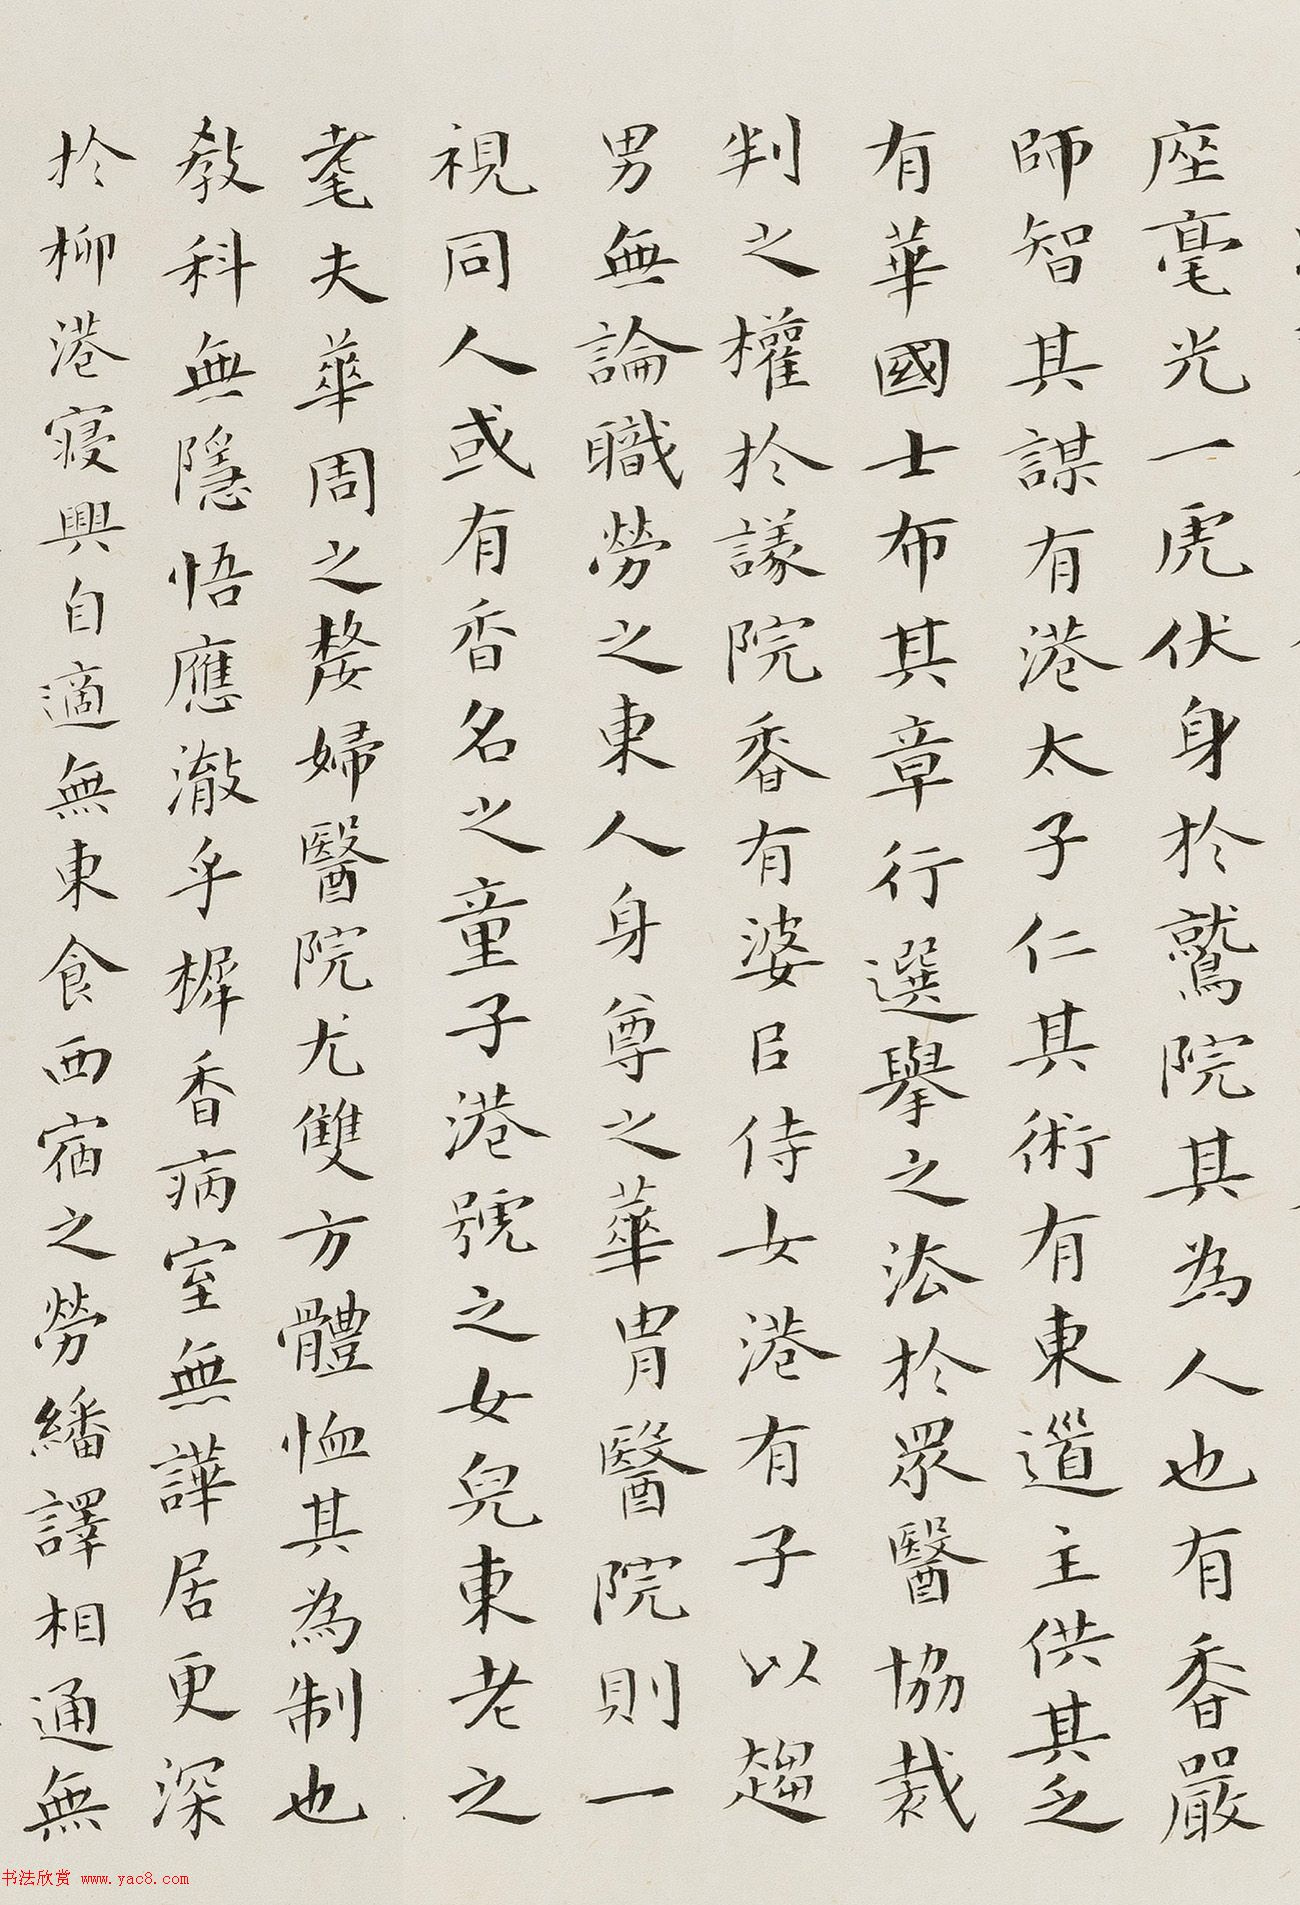 座毫光一虎伏身於鷲院其為人也有香嚴
師智其謀有港太子仁其術有東道主供其乏
有華國士布其章行選舉之法於眾醫協裁
判之權於議院香有婆臣侍女港有子以趨
男無論職勞之東人身尊之華胄醫院則一
視同人或有香名之童子港號之女兒東老之
耄夫華周之嫠婦醫院尤雙方體恤其為制也
教科無隱悟應澈乎樨香病室無譁居更深
於柳港寢興自適無東食西宿之勞繙譯相通無
书法欣赏 www.yac8.com